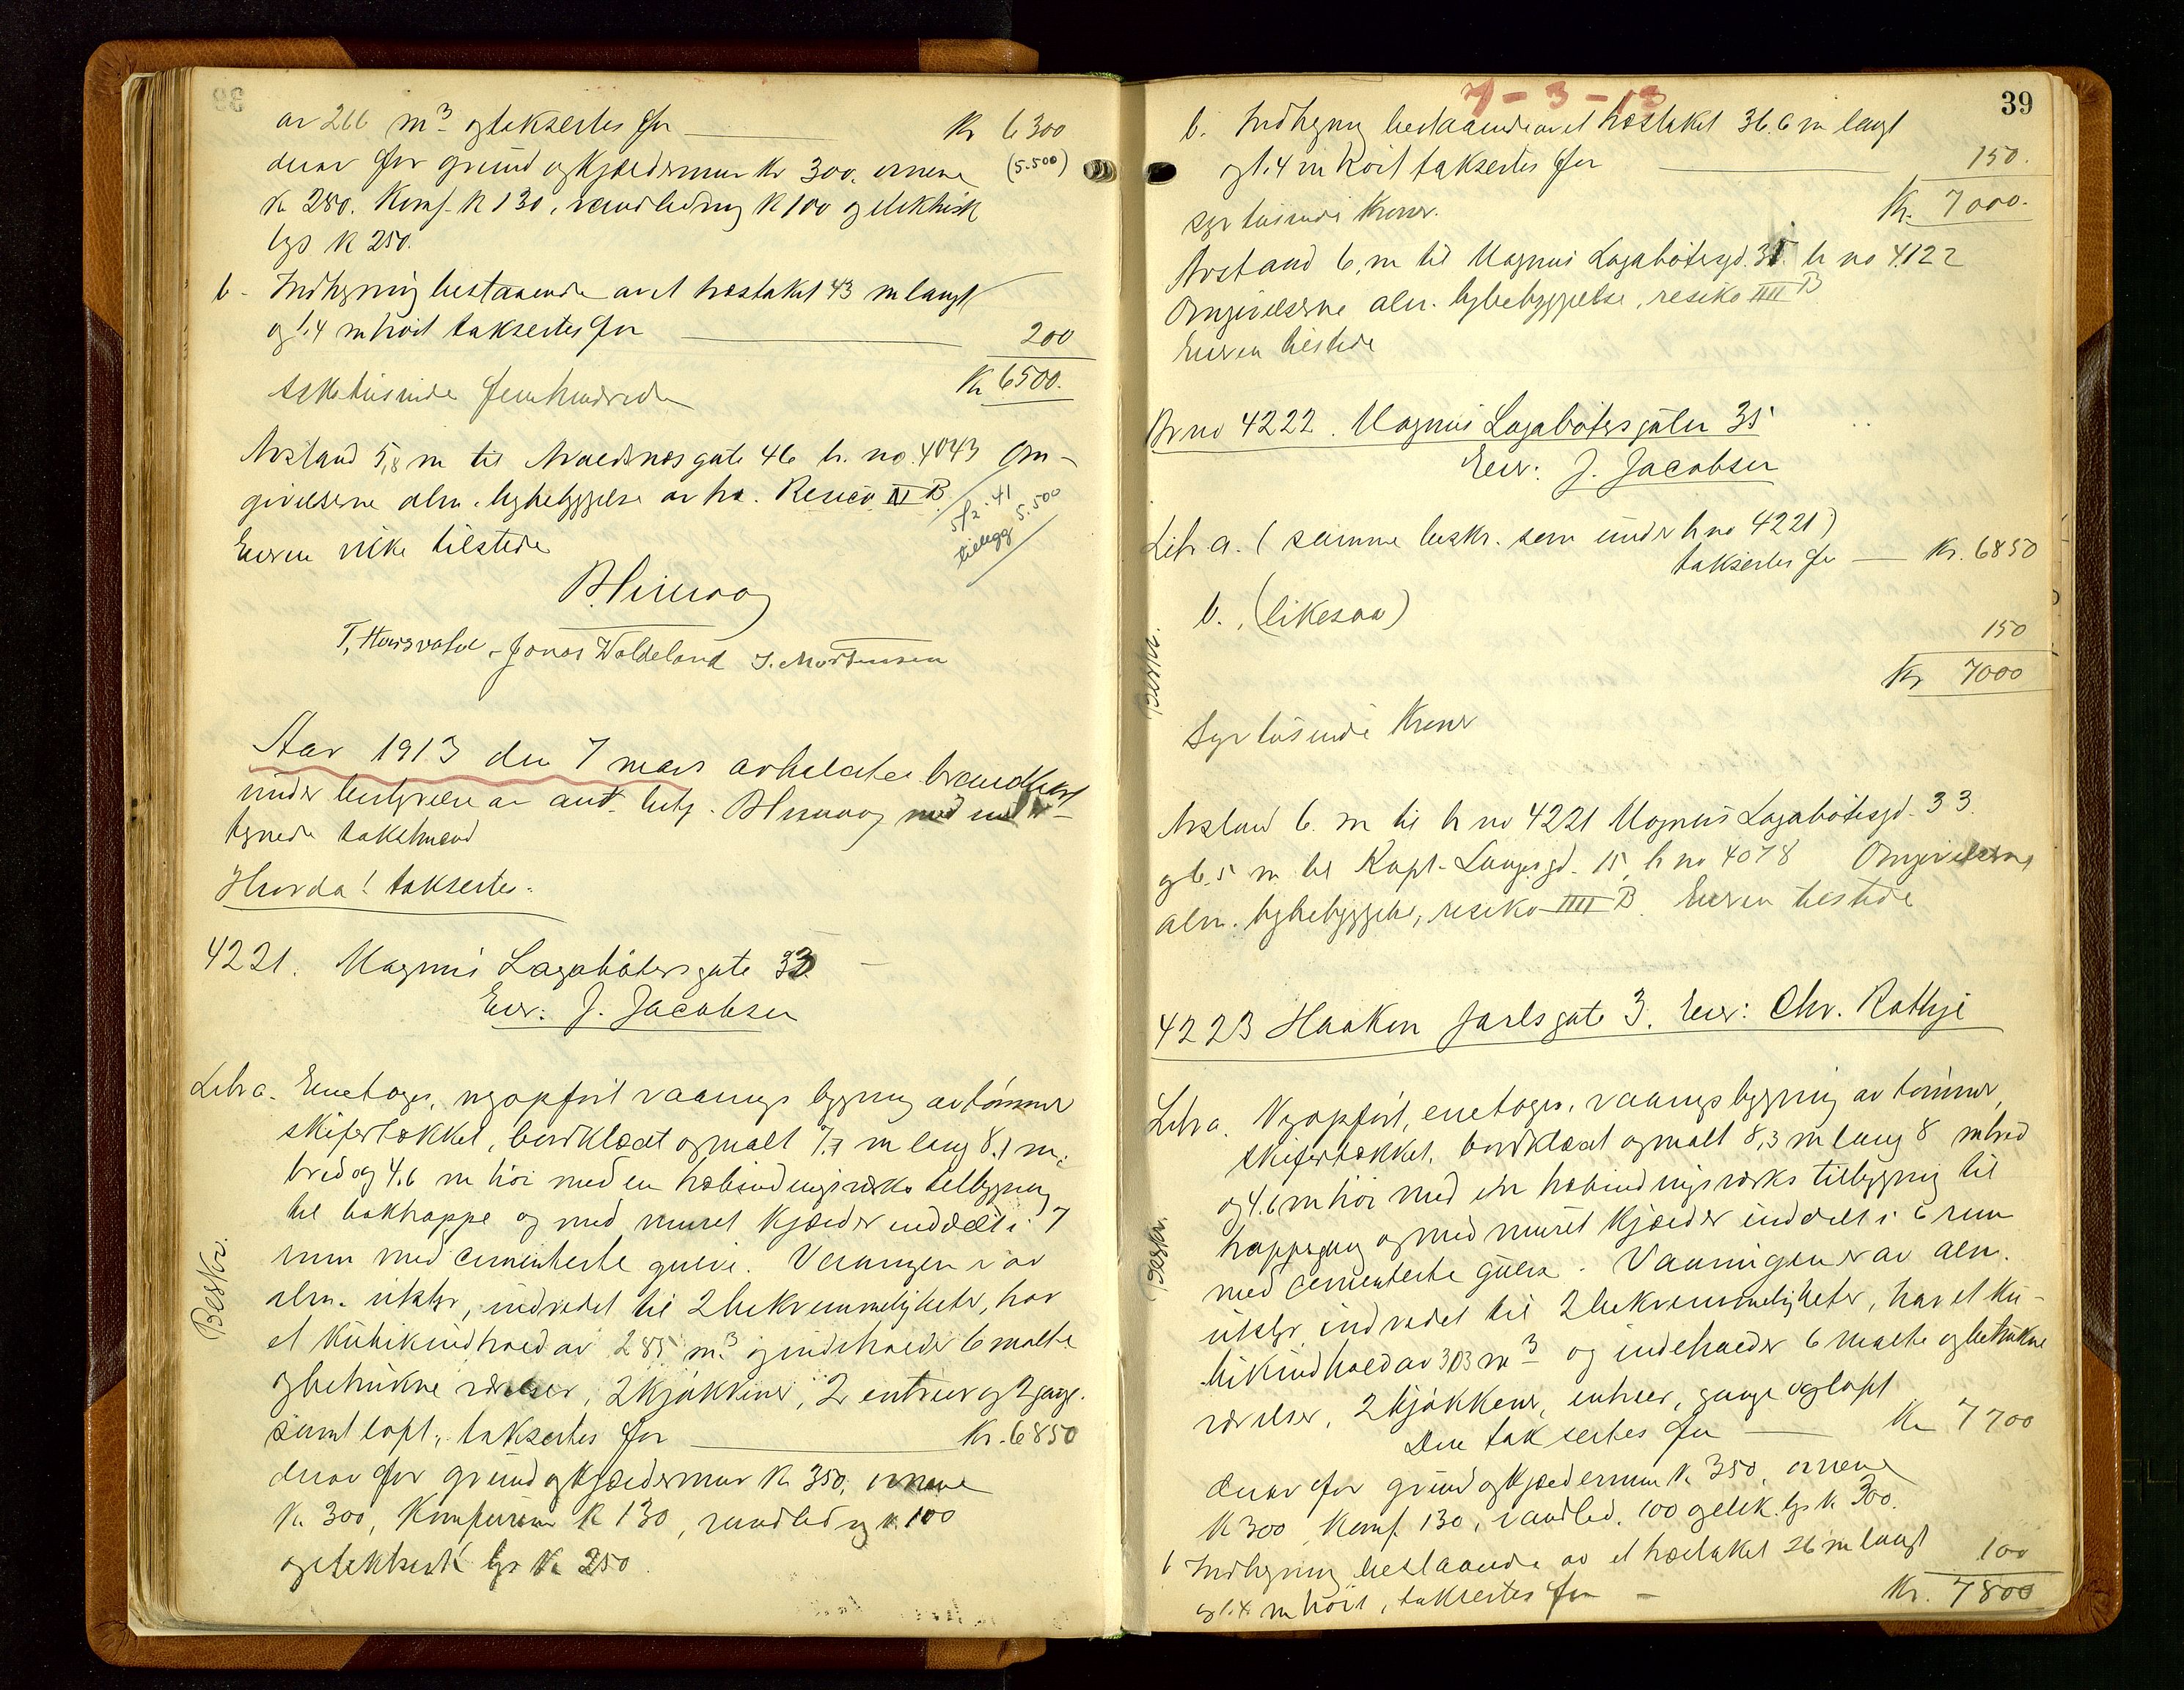 av 266 m³ og taksertes for — Kr 6300
derav for grund og kjældermur Kr 300, ovnene (5.500)
Kr 280. Komf. Kr 130, vandledning Kr 100 og elektrisk
lys Kr 250.
b. Indhegning bestaaende av et træstaket 43 m langt
og 1.4 m høit taksertes for — 200
sekstusinde femhundrede Kr 6500.
Avstand 5,8 m til Avaldsnesgate 46 br. no. 4043 Om-
givelserne alm. bybebyggelse av træ. Resico III B.
5/2-41
tillegg 5.500
Eieren ikke tilstede
T. Hausvater. Jonas Woldeland J. Mortensen
Aar 1913 den 7 mars avholdtes brandtakst
under bestyrelse av aut. best. med under-
tegnede takstmænd
Hvorda! taksertes.
4221. Magnus Lagabøtersgate 33
Eier: J. Jacobsen
Litr a. Enetages, nyopført vaanings bygning av tømmer
skifertækket, bordklædt og malt 7.7 m lang 8.1 m
bred og 4.6 m høi med en træbindingsverks tilbygning
til baktrappe og med muret kjælder inddelt i 7
rum med cementerte gulve. Vaaningen er av
Beskr.
alm. utstyr, indredet til 2 bekvemmeligheter, har
et kubikindhold av 285 m³ og indeholder 6 malte
og betrukne værelser, 2 kjøkkener, 2 entreer og 2 gange
samt loft, taksertes for — Kr. 6850
derav for grund og kjældermur Kr 350, ovnene
Kr 300, Komfurerne Kr 130, vandledng Kr 100
og elektrisk lys Kr 250.
39
7-3-13
b. Indhegning bestaaende av et træstaket 36.6 m langt
og 1.4 m høit taksertes for — 150.
syv tusinde Kroner. Kr. 7000.
Avstand 6 m til Magnus Lagabøtesgd. 35 br no 4122
Omgivelserne alm. bybebyggelse, resiko IIII B
Eieren tilstede
Br no 4222. Magnus Lagabøtersgaten 35
Eier: J. Jacobsen
Litr a. (samme beskr. som under br no 4221)
taksertes for — Kr. 6850
b. (likesaa)
150
Beskr.
Kr 7000
Syv tusinde Kroner
Avstand 6 m til br no 4221 Magnus Lagabøtesgd. 33
og 6.5 m til Kapt. Langesgd. 15 br no 4078 Omgivelserne
alm. bybebyggelse, resiko IIII B. Eieren tilstede
4223 Haakon Jarlsgate 3. Eier: Chr. Rathje
Litr a. Nyopført, enetages, vaaningsbygning av tømmer,
skifertækket, bordklædt og malt 8,3 m lang 8 m bred
og 4.6 m høi med en træbindingsverks tilbygning til
trappegang og med muret kjælder inddelt i 6 rum
Beskr.
med cementerte gulve. Vaaningen er av alm.
utstyr indredet til 2 bekvemmeligheter, har et ku-
bikindhold av 303 m³ og indeholder 6 malte og betrukne
værelser, 2 kjøkkener, entreer, gange og loft
Den taksertes for — Kr 7700
derav for grund og kjældermur Kr 350, ovnene
Kr 300, Komf. 130, vandled. 100 og elek. lys Kr 300.
b Indhegning bestaaende av et træstaket 26 m langt 100
og 1.4 m høit, taksertes for — Kr. 7800